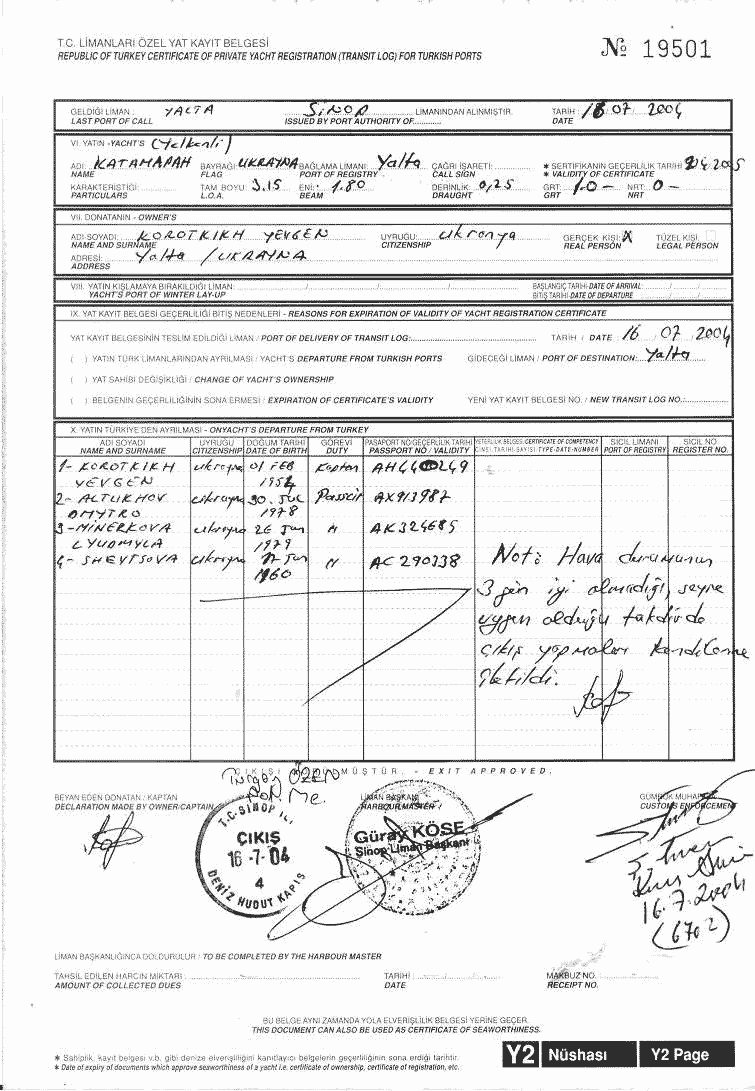 T.C. LİMANLARI ÖZEL YAT KAYIT BELGESİ
REPUBLIC OF TURKEY CERTIFICATE OF PRIVATE YACHT REGISTRATION (TRANSIT LOG) FOR TURKISH PORTS
№ 19501
GELDİĞİ LİMAN : YALTA SİNOP LİMANINDAN ALINMIŞTIR. TARİH : 16 07 2004
LAST PORT OF CALL ISSUED BY PORT AUTHORITY OF DATE
VI. YATIN -YACHT'S (Yelkenli)
ADI: KATAMAPAH BAYRAĞI: UKRAYNA BAĞLAMA LİMANI: Yalta ÇAĞRI İŞARETİ: * SERTİFİKANIN GEÇERLİLİK TARİHİ
NAME FLAG PORT OF REGISTRY CALL SIGN * VALIDITY OF CERTIFICATE
KARAKTERİSTİĞİ: TAM BOYU: 3.15 ENİ: 1.80 DERİNLİK: 0,25 GRT: 1.0 - NRT: 0 -
PARTICULARS L.O.A. BEAM DRAUGHT GRT NRT
VII. DONATANIN - OWNER'S
ADI-SOYADI: KOROTKIKH YEVGEN UYRUĞU: Ukranya GERÇEK KİŞİ: X TÜZEL KİŞİ
NAME AND SURNAME CITIZENSHIP REAL PERSON LEGAL PERSON
ADRESİ: Yalta / UKRAYNA
ADDRESS
VIII. YATIN KIŞLAMAYA BIRAKILDIĞI LİMAN: BAŞLANGIÇ TARİHİ-DATE OF ARRIVAL
YACHT'S PORT OF WINTER LAY-UP BİTİŞ TARİHİ-DATE OF DEPARTURE
IX. YAT KAYIT BELGESİ GEÇERLİLİĞİ BİTİŞ NEDENLERİ - REASONS FOR EXPIRATION OF VALIDITY OF YACHT REGISTRATION CERTIFICATE
YAT KAYIT BELGESİNİN TESLİM EDİLDİĞİ LİMAN / PORT OF DELIVERY OF TRANSIT LOG: TARİH / DATE 16 07 2004
( ) YATIN TÜRK LİMANLARINDAN AYRILMASI / YACHT'S DEPARTURE FROM TURKISH PORTS GİDECEĞİ LİMAN / PORT OF DESTINATION: Yalta
( ) YAT SAHİBİ DEĞİŞİKLİĞİ / CHANGE OF YACHT'S OWNERSHIP
( ) BELGENİN GEÇERLİLİĞİNİN SONA ERMESİ / EXPIRATION OF CERTIFICATE'S VALIDITY YENİ YAT KAYIT BELGESİ NO. / NEW TRANSIT LOG NO.
X. YATIN TÜRKİYE'DEN AYRILMASI - ONYACHT'S DEPARTURE FROM TURKEY
ADI SOYADI UYRUĞU DOĞUM TARİHİ GÖREVİ PASAPORT NO/GEÇERLİLİK TARİHİ YETERLİLİK BELGESİ-CERTIFICATE OF COMPETENCY SİCİL LİMANI SİCİL NO
NAME AND SURNAME CITIZENSHIP DATE OF BIRTH DUTY PASSPORT NO / VALIDITY CİNSİ-TARİHİ-SAYISI-TYPE-DATE-NUMBER PORT OF REGISTRY REGISTER NO.
1- KOROTKIKH Ukrayna 01 FEB Kaptan
YEVGEN
2- ALTUKHOV Ukrayna 30. JUL AX913987
DMYTRO 1978
3- MINERKOVA Ukrayna 26 Jun AK324685
LYUDMYLA 1979
4- SHEVTSOVA Ukrayna AC 290338
1960
Not: Hava durumunun
3 gün iyi olmadığı, seyre
uygun olduğu takdirde
çıkış yapmaları kendilerine
iletildi.
ÇIKIŞI GÖRÜLMÜŞTÜR. - EXIT APPROVED.
BEYAN EDEN DONATAN / KAPTAN LİMAN BAŞKANI GÜMRÜK MUHAFAZA
DECLARATION MADE BY OWNER/CAPTAIN HARBOUR MASTER CUSTOMS ENFORCEMENT
T.C. SİNOP İLİ
ÇIKIŞ
16 -7- 04
4
DENİZ HUDUT KAPISI
Güray KÖSE
Sinop Liman Başkanı
16.7.2004
(6702)
LİMAN BAŞKANLIĞINCA DOLDURULUR / TO BE COMPLETED BY THE HARBOUR MASTER
TAHSİL EDİLEN HARCIN MİKTARI : TARİHİ : MAKBUZ NO.
AMOUNT OF COLLECTED DUES DATE RECEIPT NO.
BU BELGE AYNI ZAMANDA YOLA ELVERİŞLİLİK BELGESİ YERİNE GEÇER.
THIS DOCUMENT CAN ALSO BE USED AS CERTIFICATE OF SEAWORTHINESS.
* Sahiplik, kayıt belgesi v.b. gibi denize elverişliliğini kanıtlayıcı belgelerin geçerliliğinin sona erdiği tarihtir.
* Date of expiry of documents which approve seaworthiness of a yacht i.e. certificate of ownership, certificate of registration, etc.
Y2 Nüshası Y2 Page